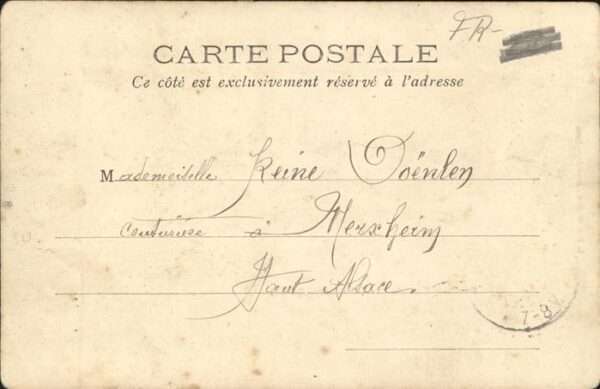 FR-
CARTE POSTALE
Ce côté est exclusivement réservé à l'adresse
Mademoiselle Reine Doënlen
Couturière à Merxheim
Haut Alsace.
7-8